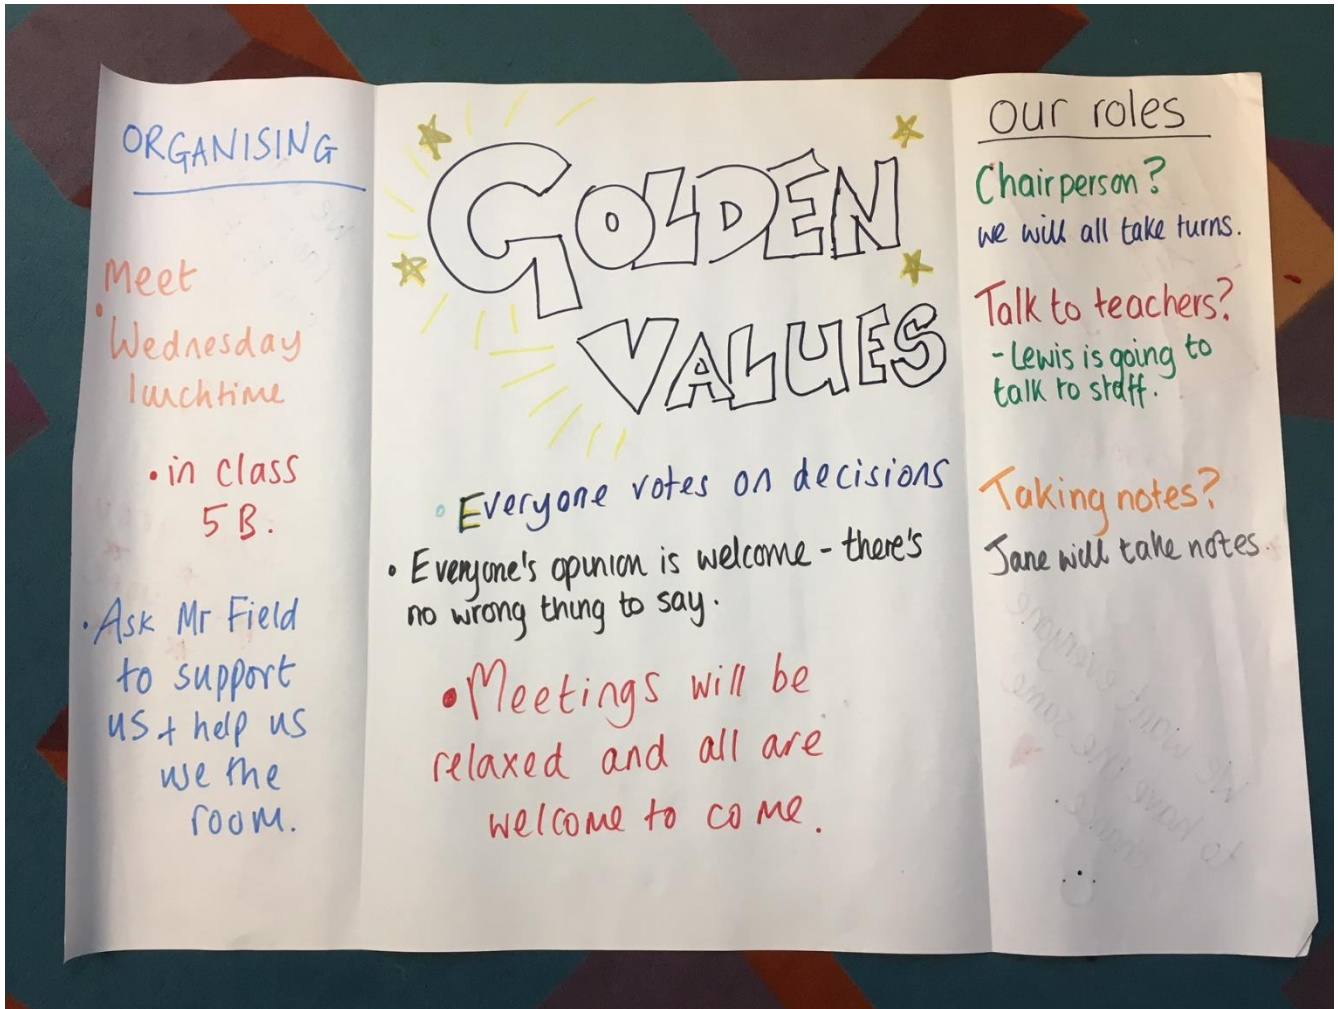 ORGANISING
Meet
• Wednesday
lunchtime
• in class
5B.
• Ask Mr Field
to support
us + help us
use the
room.
GOLDEN
VALUES
• Everyone votes on decisions
• Everyone's opinion is welcome - there's
no wrong thing to say.
• Meetings will be
relaxed and all are
welcome to come.
Our roles
Chairperson?
we will all take turns.
Talk to teachers?
- Lewis is going to
talk to staff.
Taking notes?
Jane will take notes.
We want everyone
to have the same
chance